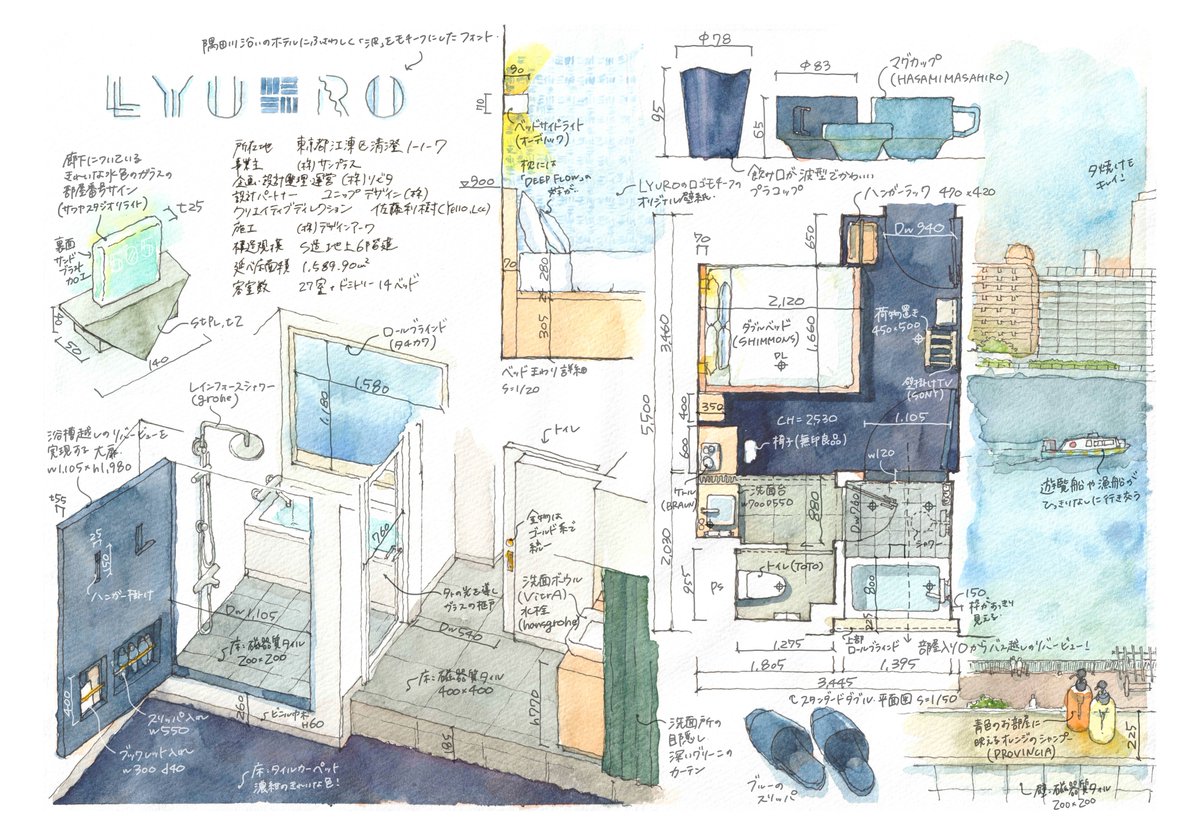 隅田川沿いのホテルにふさわしく「波」をモチーフにしたフォント.
LYURO
所在地 東京都江東区清澄 1-1-7
事業主 (株)サンプラス
企画・設計監理・運営 (株)リビタ
設計パートナー ユニップデザイン(株)
クリエイティブディレクション 佐藤利樹
施工 (株)デザインアーク
構造規模 S造 地上6階建
延べ床面積 1,589.90㎡
客室数 27室+ドミトリー14ベッド
廊下についている
きれいな水色のガラスの
部屋番号サイン
(サワヤスタジオリライト)
t25
裏面
サンド
ブラスト
加工
505
40
50
140
StPL,t2
90
70
ベッドサイドライト
(オーデリック)
枕には
「DEEP FLOW」の
▽900
70
280
305
ベッドまわり詳細
S=1/20
LYUROのロゴモチーフの
オリジナル壁紙.
Φ78
95
Φ83
65
マグカップ
(HASAMI MASAHIRO)
飲み口が波型でかわいい
プラコップ
ハンガーラック 490×420
夕焼けも
キレイ!
遊覧船や漁船が
ひっきりなしに行き交う
ロールブラインド
(タチカワ)
1,580
1,180
レインフォースシャワー
(grohe)
浴槽越しのリバービューを
実現する大扉
w1,105×h1,980
t55
25
150
ハンガー掛け
400
スリッパ入れ
w550
ブックレット入れ
w300 d40
Dw1,105
床:磁器質タイル
200×200
260
ビニル巾木
H60
床:タイルカーペット
濃紺のきれいな色!
760
外の光を導く
ガラスの框戸
トイレ
金物は
ゴールド系で
統一
洗面ボウル
(VitrA)
水栓
(hansgrohe)
Dw540
床:磁器質タイル
400×400
h770
185
洗面所の
目隠し
深いグリーンの
カーテン
ブルーの
スリッパ
70
650
Dw940
2,120
1,660
ダブルベッド
(SIMMONS)
PL
荷物置き
450×500
壁掛けTV
(SONY)
3,460
5,500
2,030
350
400
600
CH=2530
1,105
椅子(無印良品)
w120
ケトル
(BRAUN)
洗面台
w700 D550
880
Dw760
シャワー
955
PS
トイレ(TOTO)
800
225
150
枠がすっきり
見える
上部
ロールブラインド
部屋入り口からバス越しのリバービュー!
1,275
1,805
1,395
3,445
スタンダードダブル 平面図 S=1/50
青色のお部屋に
映えるオレンジのシャンプー
(PROVINCIA)
225
壁:磁器質タイル
200×200